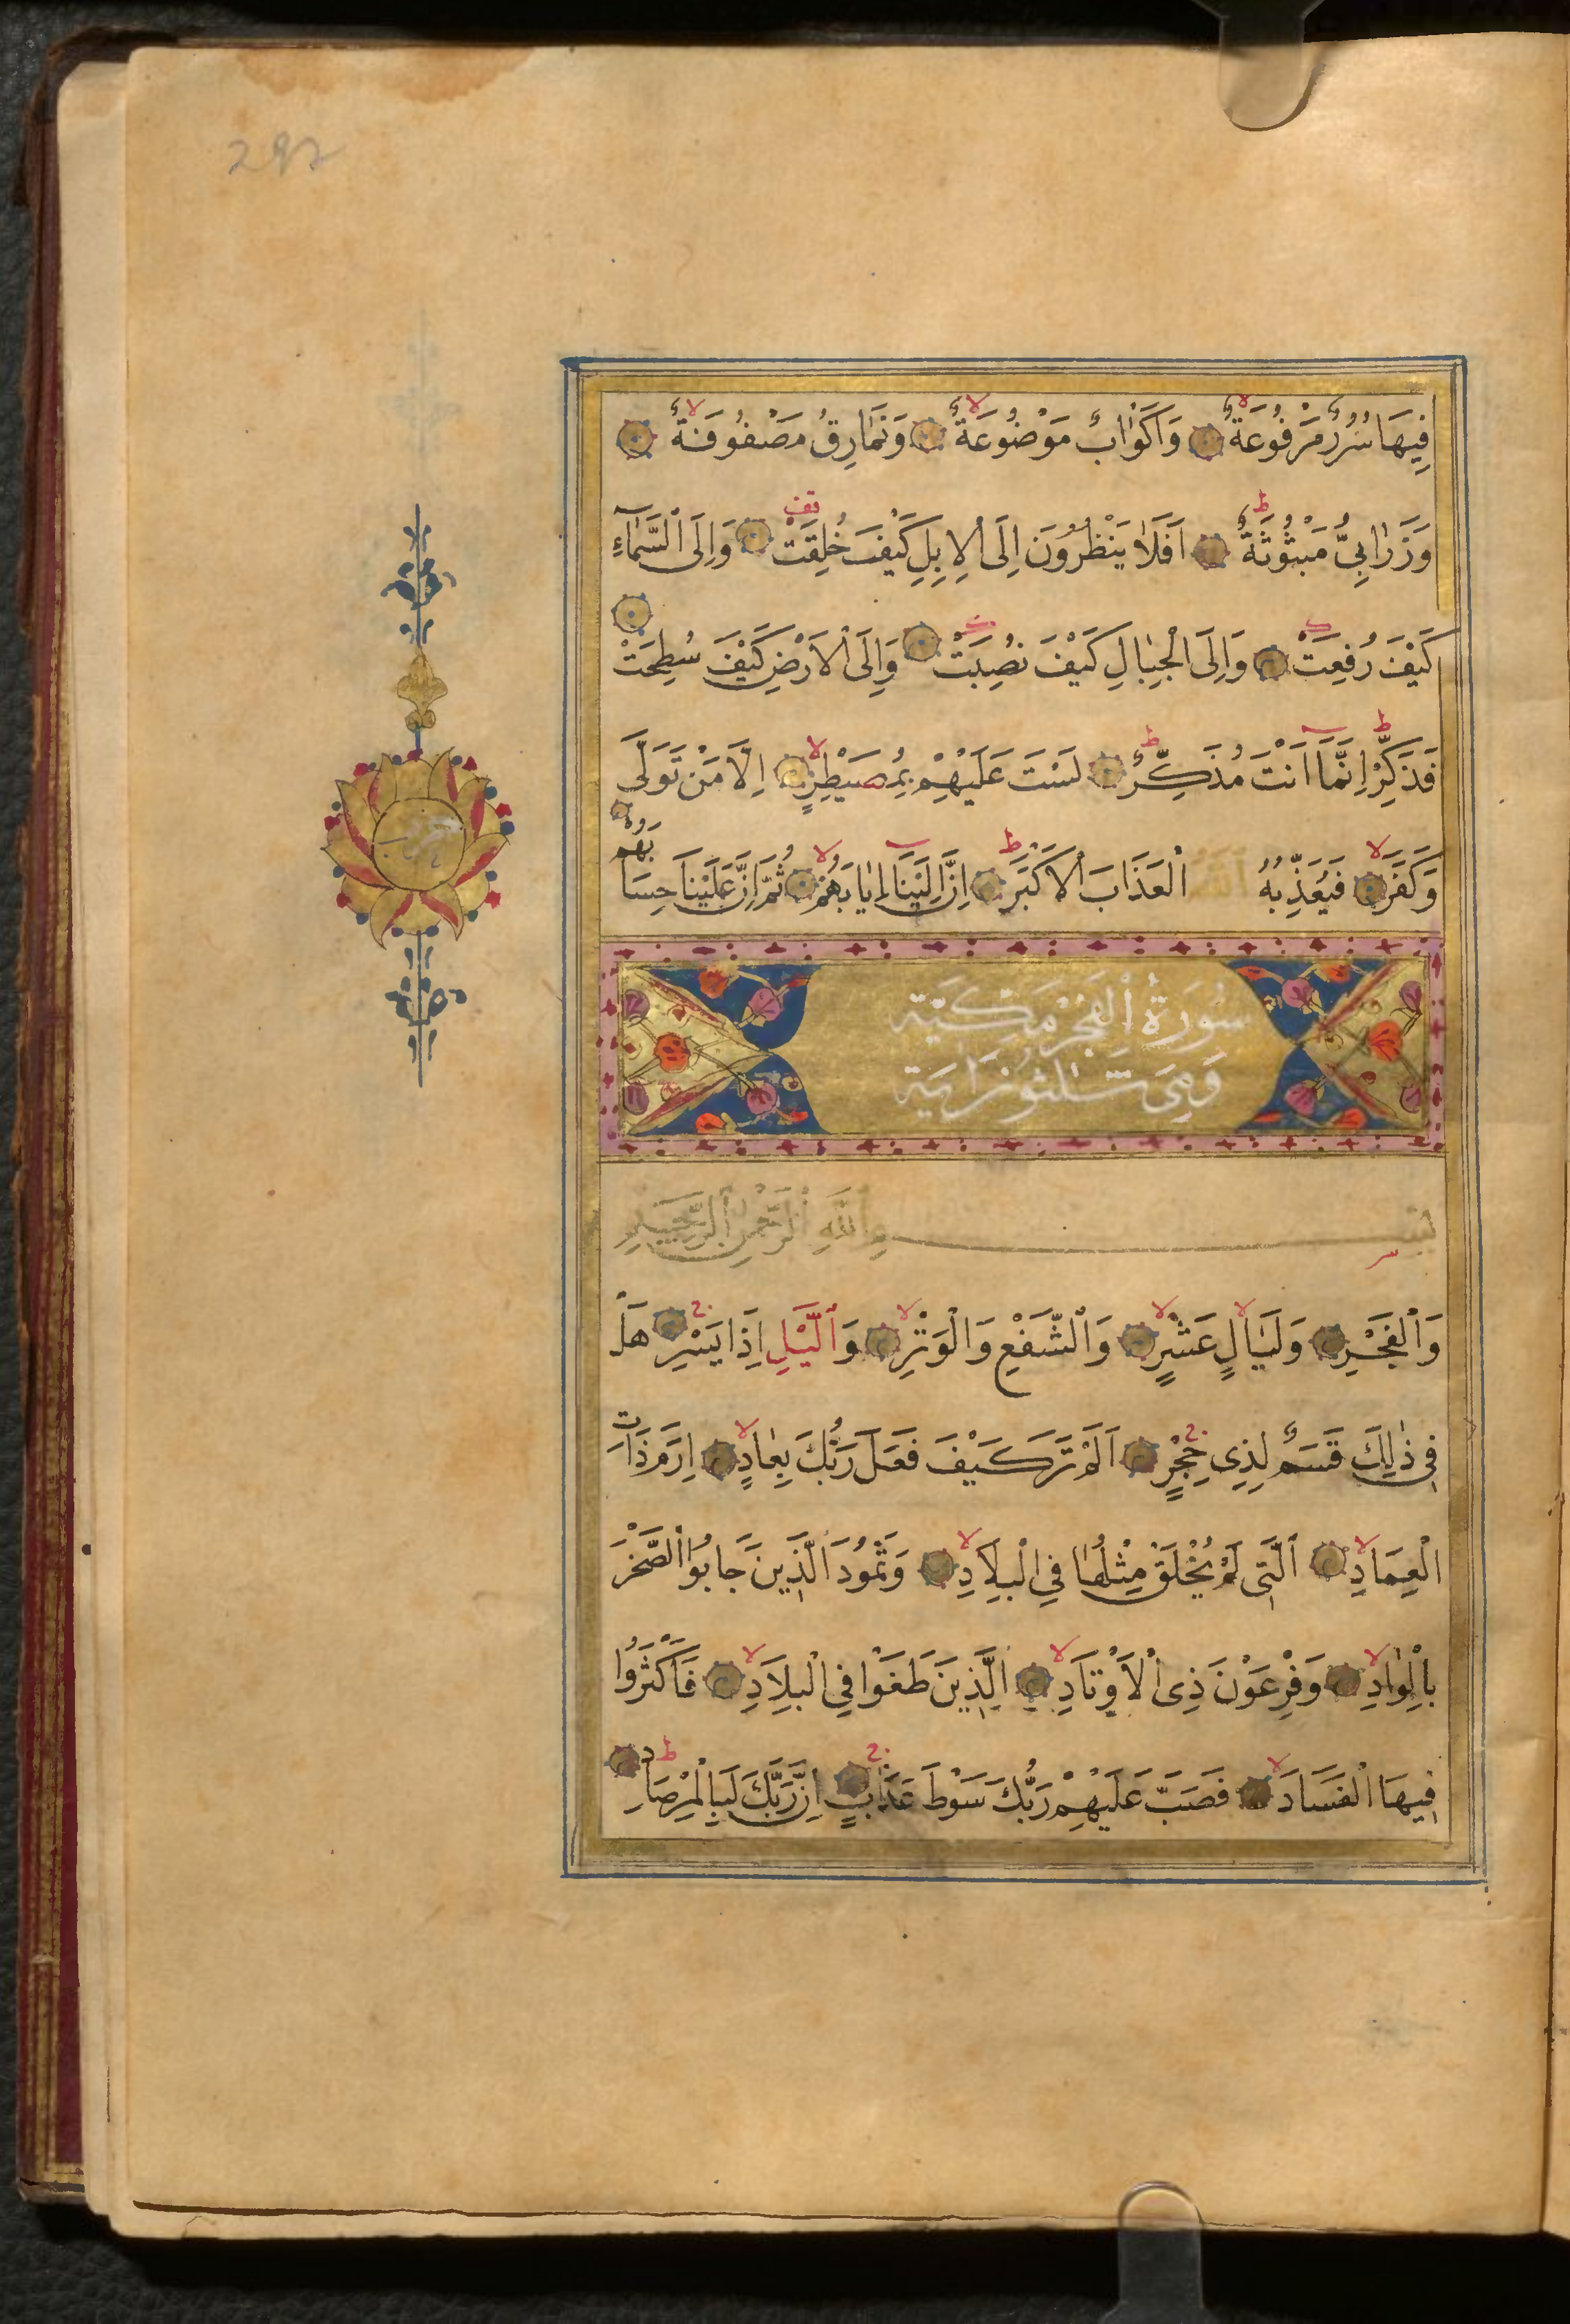 297
فِيهَا سُرُرٌ مَرْفُوعَةٌ وَاَكْوَابٌ مَوْضُوعَةٌ وَنَمَارِقُ مَصْفُوفَةٌ
وَزَرَابِيُّ مَبْثُوثَةٌ اَفَلَا يَنْظُرُونَ اِلَى الْاِبِلِ كَيْفَ خُلِقَتْ وَاِلَى السَّمَاءِ
كَيْفَ رُفِعَتْ وَاِلَى الْجِبَالِ كَيْفَ نُصِبَتْ وَاِلَى الْاَرْضِ كَيْفَ سُطِحَتْ
فَذَكِّرْ اِنَّمَا اَنْتَ مُذَكِّرٌ لَسْتَ عَلَيْهِمْ بِمُصَيْطِرٍ اِلَّا مَنْ تَوَلَّى
وَكَفَرَ فَيُعَذِّبُهُ اللّٰهُ الْعَذَابَ الْاَكْبَرَ اِنَّ اِلَيْنَا اِيَابَهُمْ ثُمَّ اِنَّ عَلَيْنَا حِسَابَهُمْ
سُورَةُ الْفَجْرِ مَكِّيَّة
وَهِىَ ثَلٰثُونَ اٰيَة
بِسْمِ اللّٰهِ الرَّحْمٰنِ الرَّحِيمِ
وَالْفَجْرِ وَلَيَالٍ عَشْرٍ وَالشَّفْعِ وَالْوَتْرِ وَالَّيْلِ اِذَا يَسْرِ هَلْ
فِى ذٰلِكَ قَسَمٌ لِذِى حِجْرٍ اَلَمْ تَرَ كَيْفَ فَعَلَ رَبُّكَ بِعَادٍ اِرَمَ ذَاتِ
الْعِمَادِ الَّتِى لَمْ يُخْلَقْ مِثْلُهَا فِى الْبِلَادِ وَثَمُودَ الَّذِينَ جَابُوا الصَّخْرَ
بِالْوَادِ وَفِرْعَوْنَ ذِى الْاَوْتَادِ الَّذِينَ طَغَوْا فِى الْبِلَادِ فَاَكْثَرُوا
فِيهَا الْفَسَادَ فَصَبَّ عَلَيْهِمْ رَبُّكَ سَوْطَ عَذَابٍ اِنَّ رَبَّكَ لَبِالْمِرْصَادِ